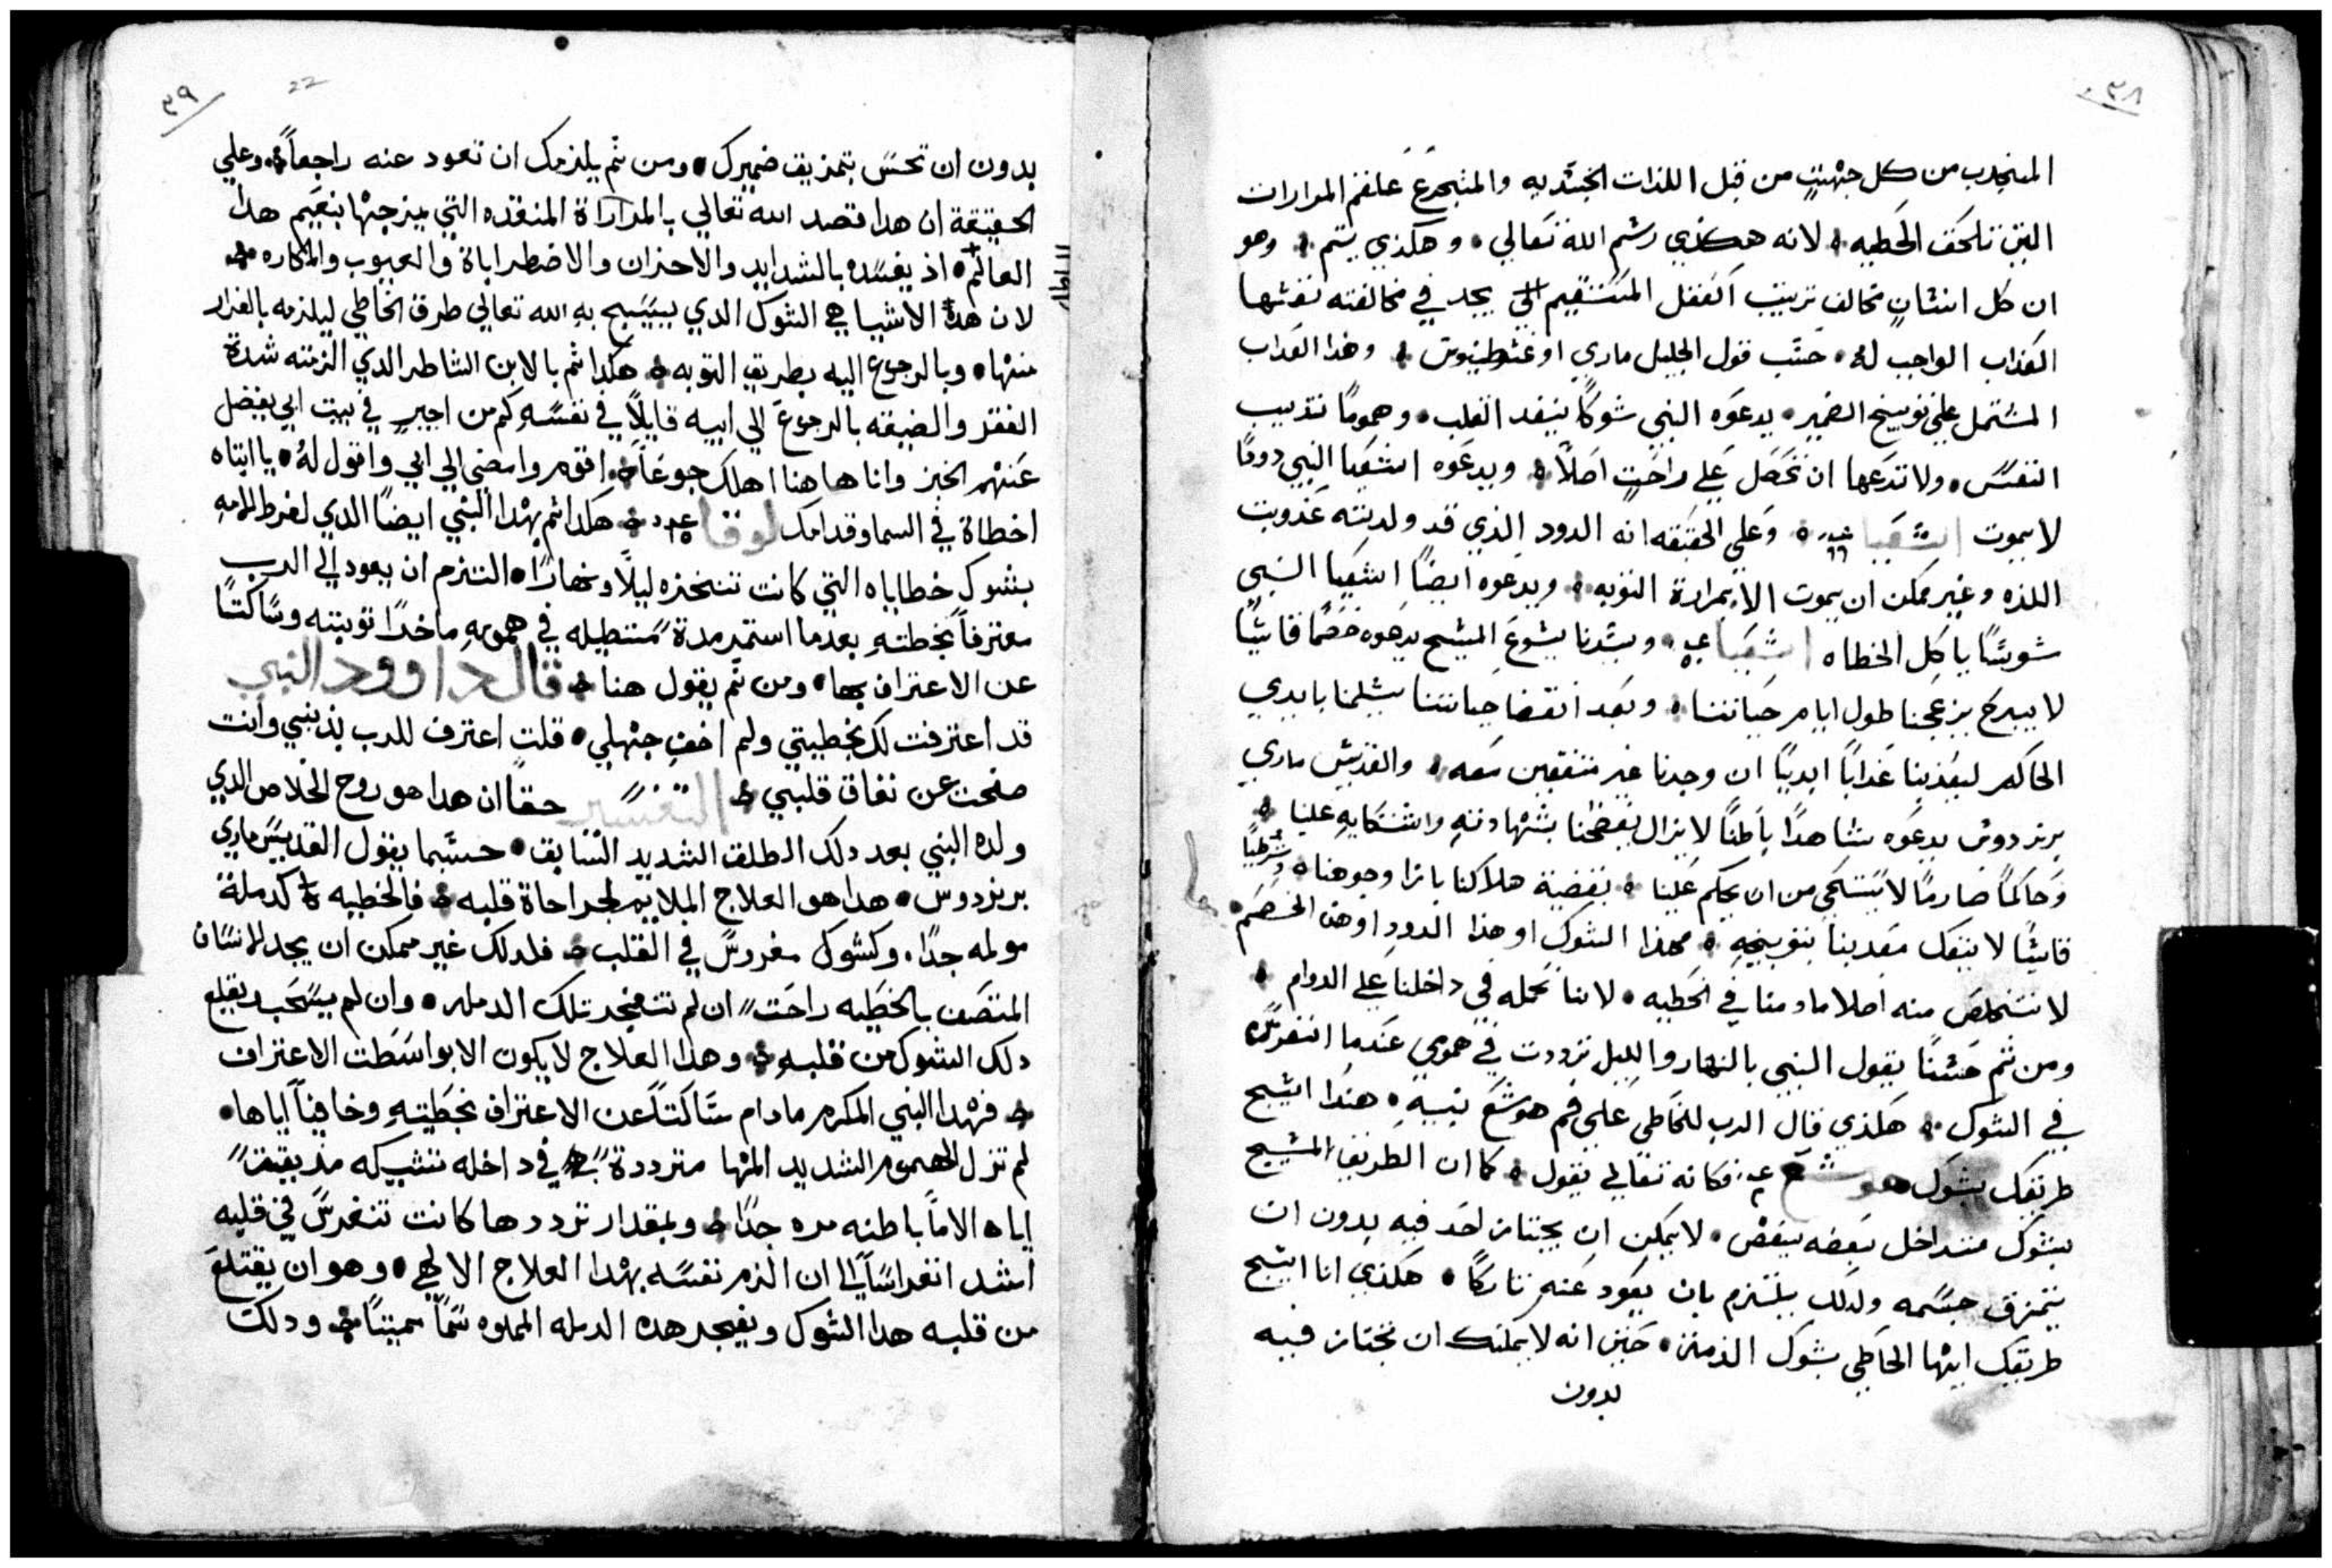 ٣٨
المنجدب من كل جهتٍ من قبل اللذات الجسديه والمتجرع علقم المرارات
التي تلحق الخطيه لانه هكذي رسم الله تعالي وهكذي يتم وهو
ان كل انسانٍ مخالف ترتيب العقل المستقيم يجد في مخالفته نفسها
العذاب الواجب له حسب قول الجليل ماري اوغسطينوس وهذا العداب
المشتمل علي توبيخ الضمير يدعوه النبي شوكًا ينفد القلب وهمومًا تديب
النفس ولا تدعها ان تحصل علي راحتٍ اصلاً ويدعوه اشعيا النبي دودًا
لا يموت اشعيا ٦٦ وعلي الحقيقه انه الدود الذي قد ولدته عذوبت
اللذه وغير ممكن ان يموت الا بمرارة التوبه ويدعوه ايضًا اشعيا النبي
سوسًا ياكل الخطاه اشعيا وسيدنا يسوع المسيح يدعوه خصمًا قاسيًا
لا يبرح يزعجنا طول ايام حياتنا وبعد انقضا حياتنا يسلمنا بايدي
الحاكم ليعذبنا عذابًا ابديًا ان وجدنا غير متفقين معه والقديس ماري
برنردوس يدعوه شاهدًا باطنًا لا يزال يفضحنا بشهادته واشتكايه علينا
وحاكمًا صارمًا لا يستحي من ان يحكم علينا بقضية هلاكنا بازا وجوهنا وشرطيًا
قاسيًا لا ينفك معدبنا بتوبيخهِ فهذا الشوك او هذا الدود او هذا الخصم
لا نتخلص منه اصلا ما دمنا في الخطيه لاننا نحمله في داخلنا علي الدوام
ومن ثم حسنًا يقول النبي بالنهار والليل ترددت في همومي عندما انغرس
في الشوك هكذي قال الرب للخاطي علي فم هوشع نبيهِ هندا اسيج
طريقك بشوك هوشع فكانه تعالي يقول كما ان الطريق المسيج
بشوك متداخل بعضه ببعض لا يمكن ان يجتاز احد فيه بدون ان
يتمزق جسمه ولدلك يلتزم بان يعود عنه ناركًا هكذي انا اسيج
طريقك ايها الخاطي بشوك الذمه حتى انه لا يمكنك ان تجتاز فيه
بدون
٣٩
22
بدون ان تحس بتمزيق ضميرك ومن ثم يلزمك ان تعود عنه راجعاً وعلي
الحقيقة ان هدا قصد الله تعالي بالمرارة المنقده التي يمزجها بنعيم هدا
العالم اذ يفسده بالشدايد والاحزان والاضطراباة والعيوب والمكاره
لان هدة الاشيا هي الشوك الدي يسيج به الله تعالي طرق الخاطي ليلزمه بالفرار
منها وبالرجوع اليه بطريق التوبه هكدا تم بالابن الشاطر الدي الزمته شدة
الفقر والضيقه بالرجوع الي ابيه قايلاً في نفسه كم من اجيرٍ في بيت ابي يفضل
عنهم الخبز وانا هاهنا اهلك جوعاً اقوم وامضي الي ابي واقول له يا ابتاه
اخطاة في السما وقدامك لوقا ١٥ هكدا تم بهدا النبي ايضًا الدي لفرط المهِ
بشوك خطاياه التي كانت تنخزه ليلاً ونهارًا التزم ان يعود الي الرب
معترفاً بخطتهِ بعدما استمر مدة مستطيله في همومهِ ماخدًا توبته وساكتًا
عن الاعتراف بها ومن ثم يقول هنا قال داوود النبي
قد اعترفت لك بخطيتي ولم اخفِ جهلي قلت اعترف للرب بذنبي وانت
صفحت عن نفاق قلبي التفسير حقًا ان هدا هو روح الخلاص الدي
ولده النبي بعد دلك الطلق الشديد السابق حسبما يقول القديس ماري
برنردوس هدا هو العلاج الملايم لجراحاة قلبه فالخطيه كدملة
مولمه جدًا وكشوك مغروس في القلب فلدلك غير ممكن ان يجد الانسان
المتصف بالخطيه راحت ان لم تنفجر تلك الدمله وان لم يسحب ويقلع
دلك الشوك من قلبهِ وهدا العلاج لا يكون الا بواسطت الاعتراف
فهدا النبي المكرم ما دام ساكتاً عن الاعتراف بخطيتهِ وخافياً اياها
لم تزل الهموم الشديد المها مترددة في داخله تشبكه مديقتً
اياه الاماً باطنه مره جدًا وبمقدار ترددها كانت تنغرس في قلبه
اشد انغراسًا الي ان الزم نفسه بهدا العلاج الالهي وهو ان يقتلع
من قلبه هدا الشوك ويفجر هده الدمله المملوه سماً مميتًا ودلك